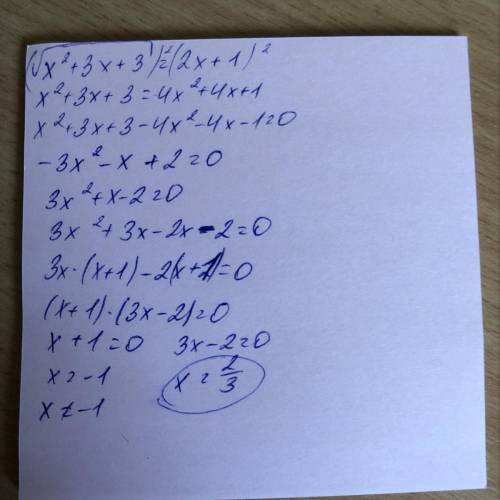 (√x²+3x+3)²=(2x+1)²
x²+3x+3=4x²+4x+1
x²+3x+3-4x²-4x-1=0
-3x²-x+2=0
3x²+x-2=0
3x²+3x-2x-2=0
3x·(x+1)-2(x+1)=0
(x+1)·(3x-2)=0
x+1=0 3x-2=0
x=-1 x=2/3
x≠-1